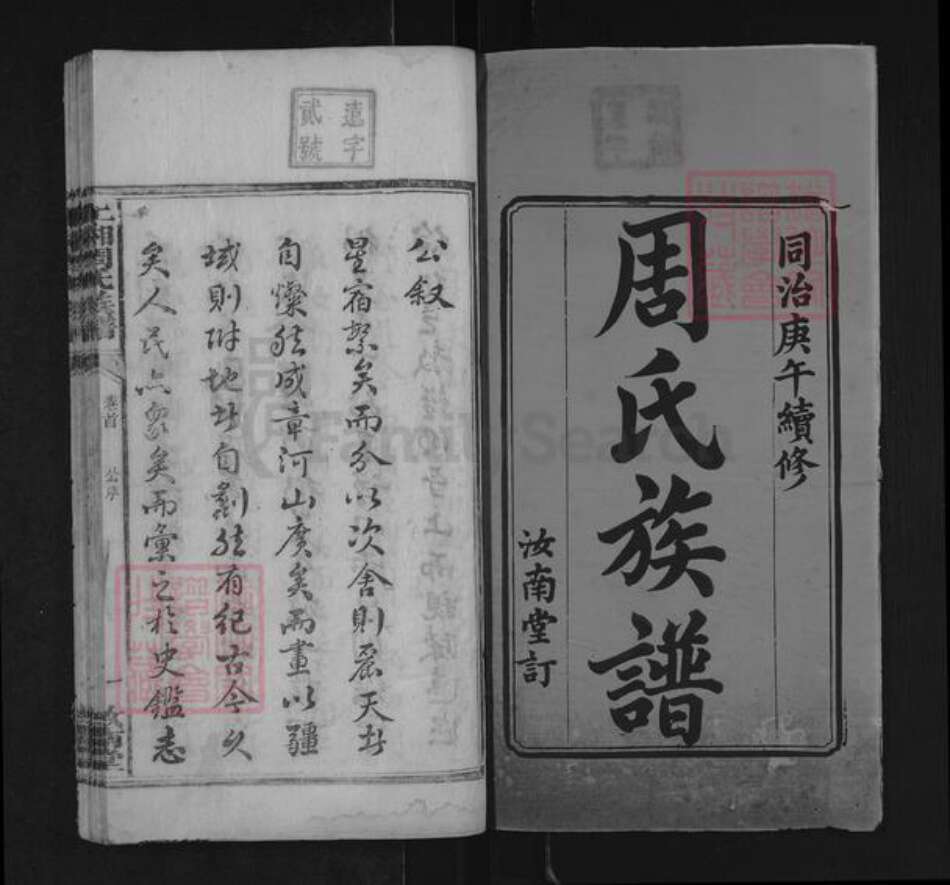 同治庚午續修
周氏族譜
汝南堂訂
遠字
貳號
公叙
星宿繁矣而分以次舍則麗天者
自燦然成章河山廣矣而畫以疆
域則附地者自劃然有紀古今久
矣人民亦衆矣而彙之於史鑑志
上湘周氏族譜
卷首
公序
一
Family Search